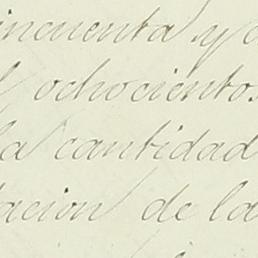 incuenta y
ochocientos
la cantidad
tacion de la